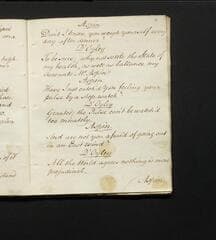 Aspin
Don't I know, you weigh yourself every
day after dinner?
D'Oyley
To be sure, why not note the State of
my health, as well as ballance my
Accounts Mr. Aspin?
Aspin
Have I not catch'd you feeling your
pulse by a Stop watch?
D'Oyley
Granted, the Pulse can't be watch'd
too minutely.
Aspin
And are not you afraid of going out
in an East wind?
D'Oyley
All the World agrees nothing is more
prejudicial.
Aspin